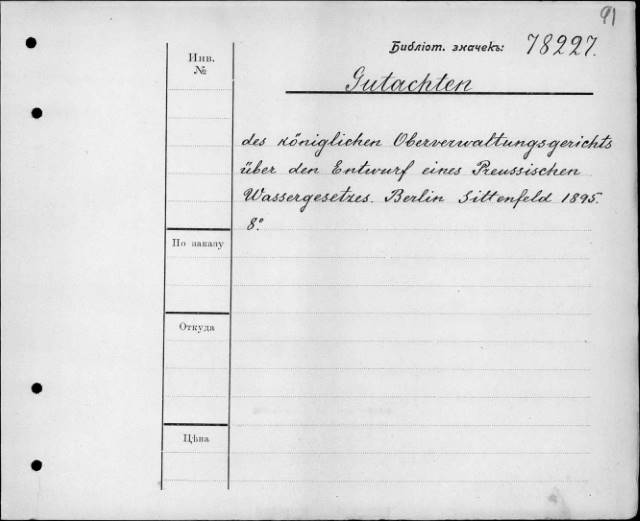 91
Библіот. значекъ: 78227.
Инв.
№
Gutachten
des königlichen Oberverwaltungsgerichts
über den Entwurf eines Preussischen
Wassergesetzes. Berlin Sittenfeld 1895.
8°.
По заказу
Откуда
Цѣна